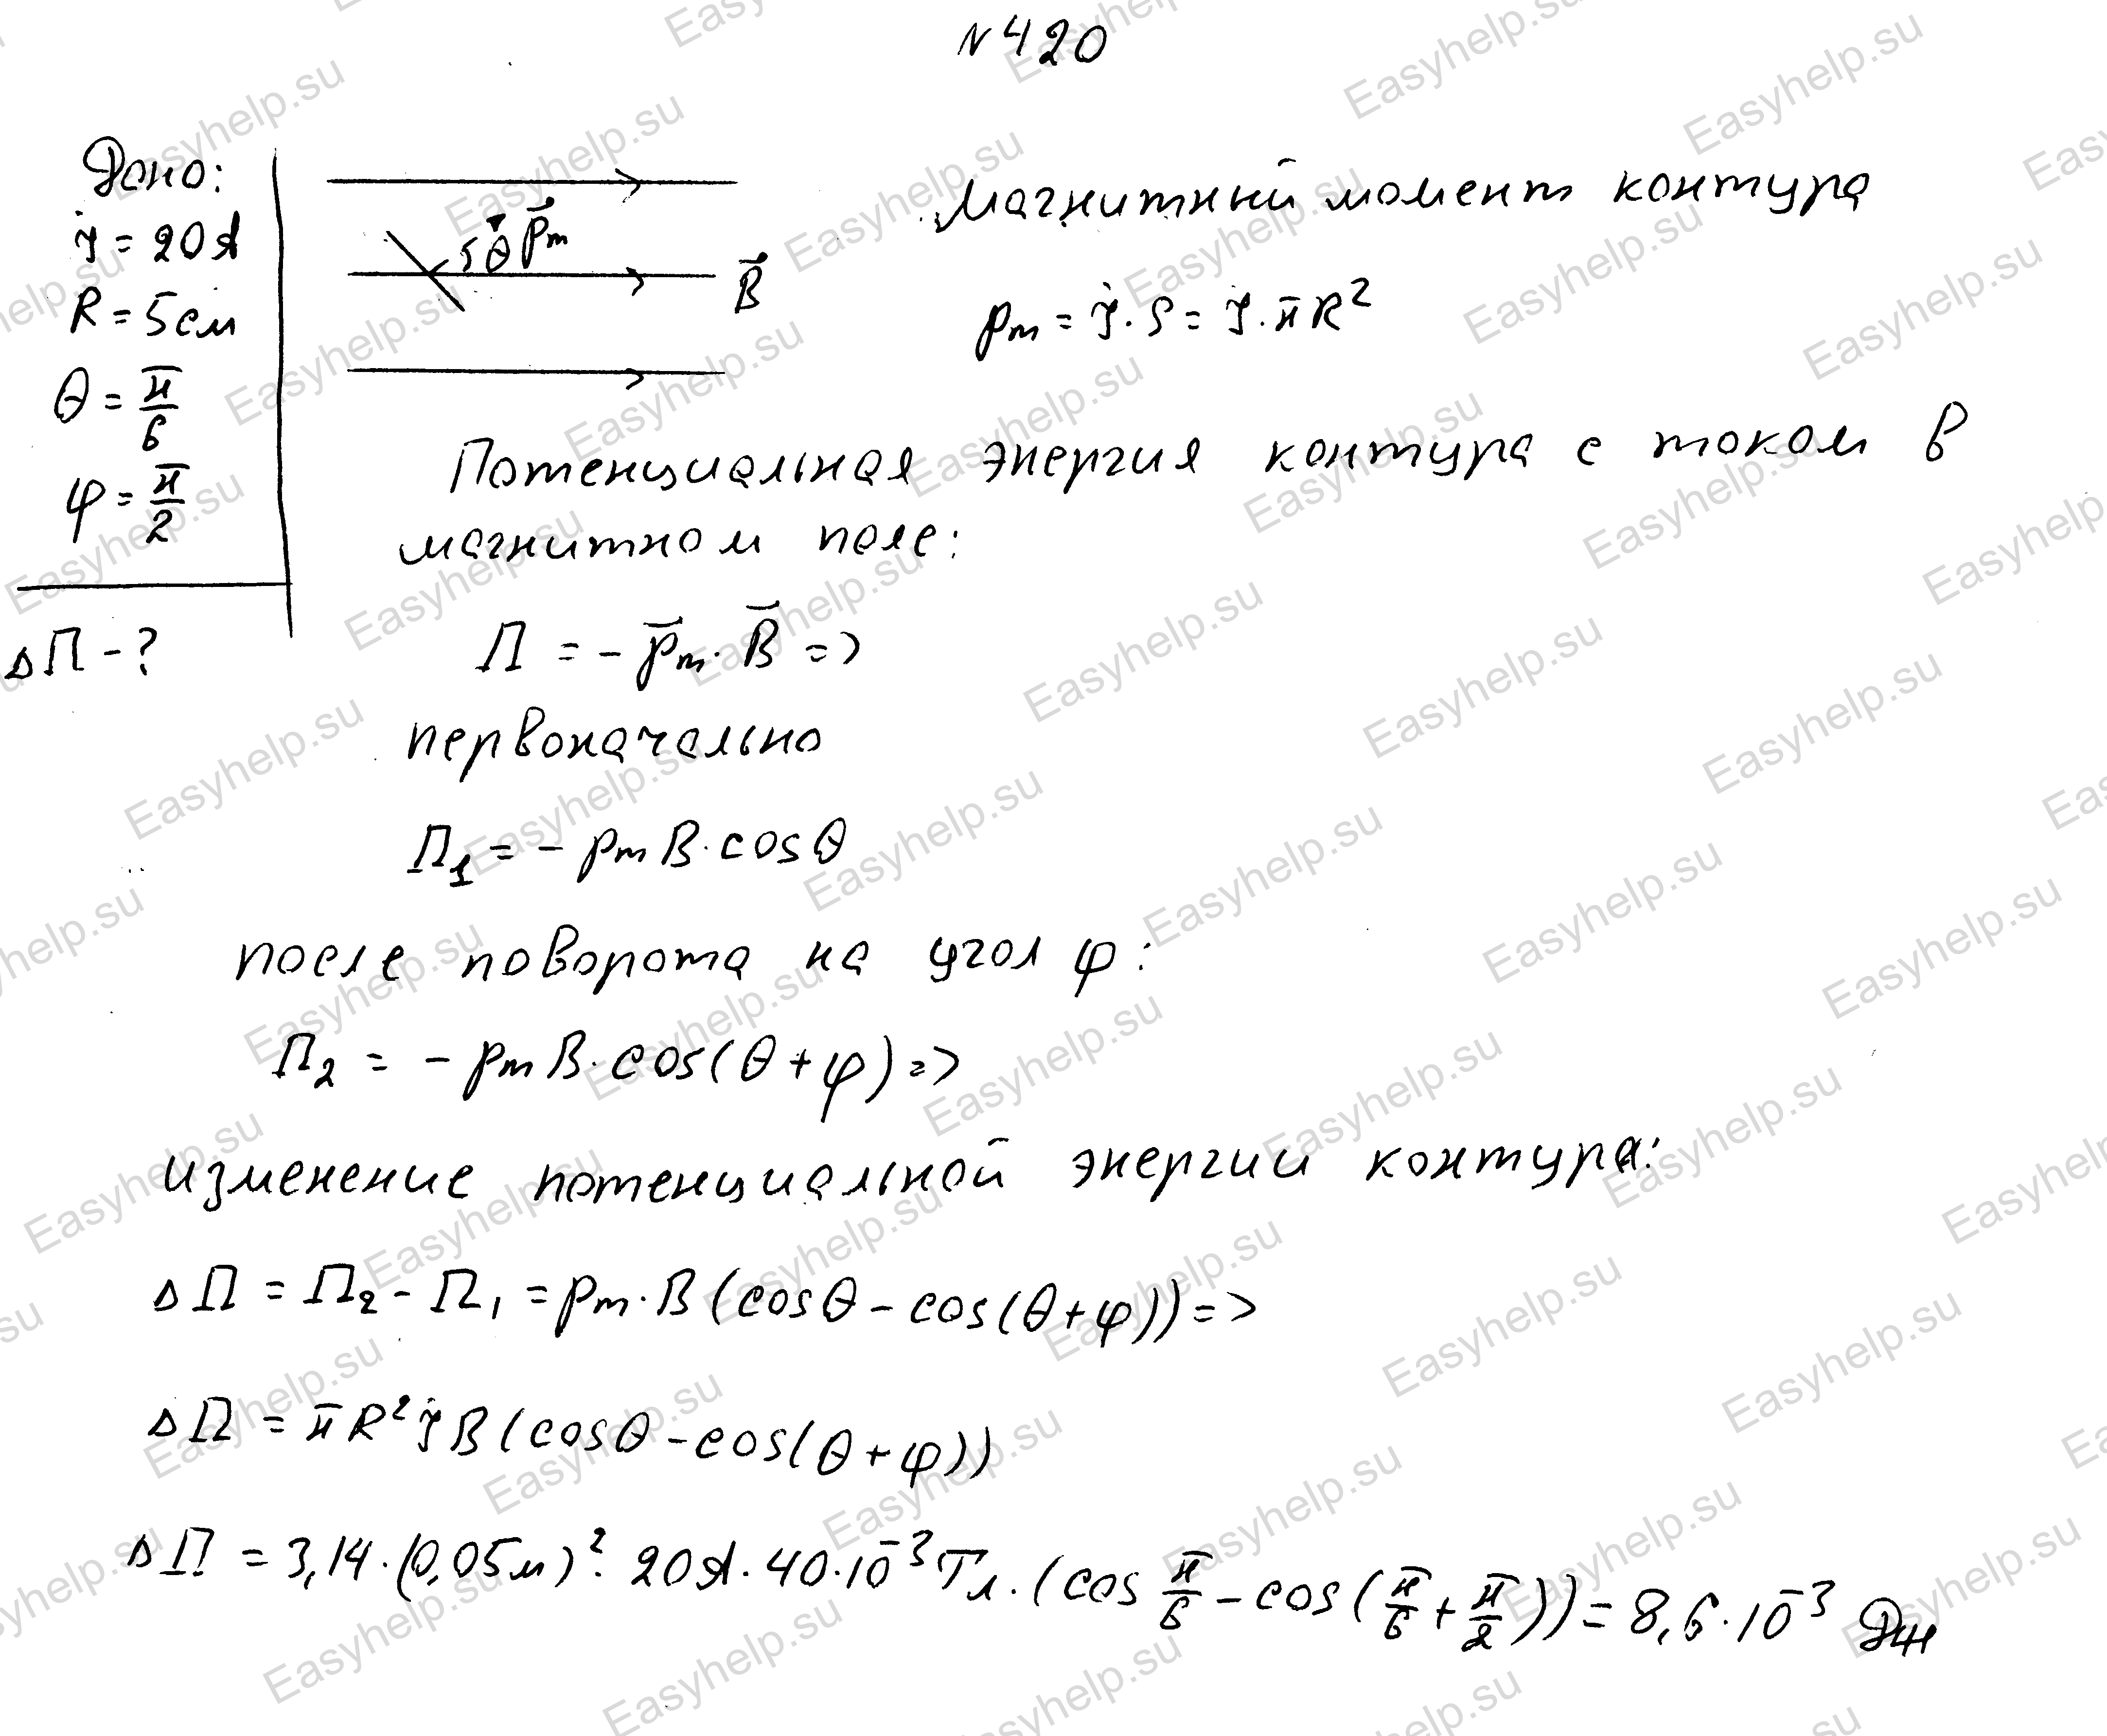 N420
Дано:
I = 20 А
R = 5 см
θ = π/6
φ = π/2
ΔП - ?
θ p⃗m
B⃗
Магнитный момент контура
pm = I · S = I · πR²
Потенциальная энергия контура с током в
магнитном поле:
П = - p⃗m · B⃗ =>
первоначально
П₁ = - pm B · cosθ
после поворота на угол φ:
П₂ = - pm B · cos(θ + φ) =>
изменение потенциальной энергии контура:
ΔП = П₂ - П₁ = pm · B (cosθ - cos(θ + φ)) =>
ΔП = πR² I B (cosθ - cos(θ + φ))
ΔП = 3,14 · (0,05м)² · 20А · 40 · 10⁻³ Тл · (cos π/6 - cos (π/6 + π/2)) = 8,6 · 10⁻³ Дж
Easyhelp.su